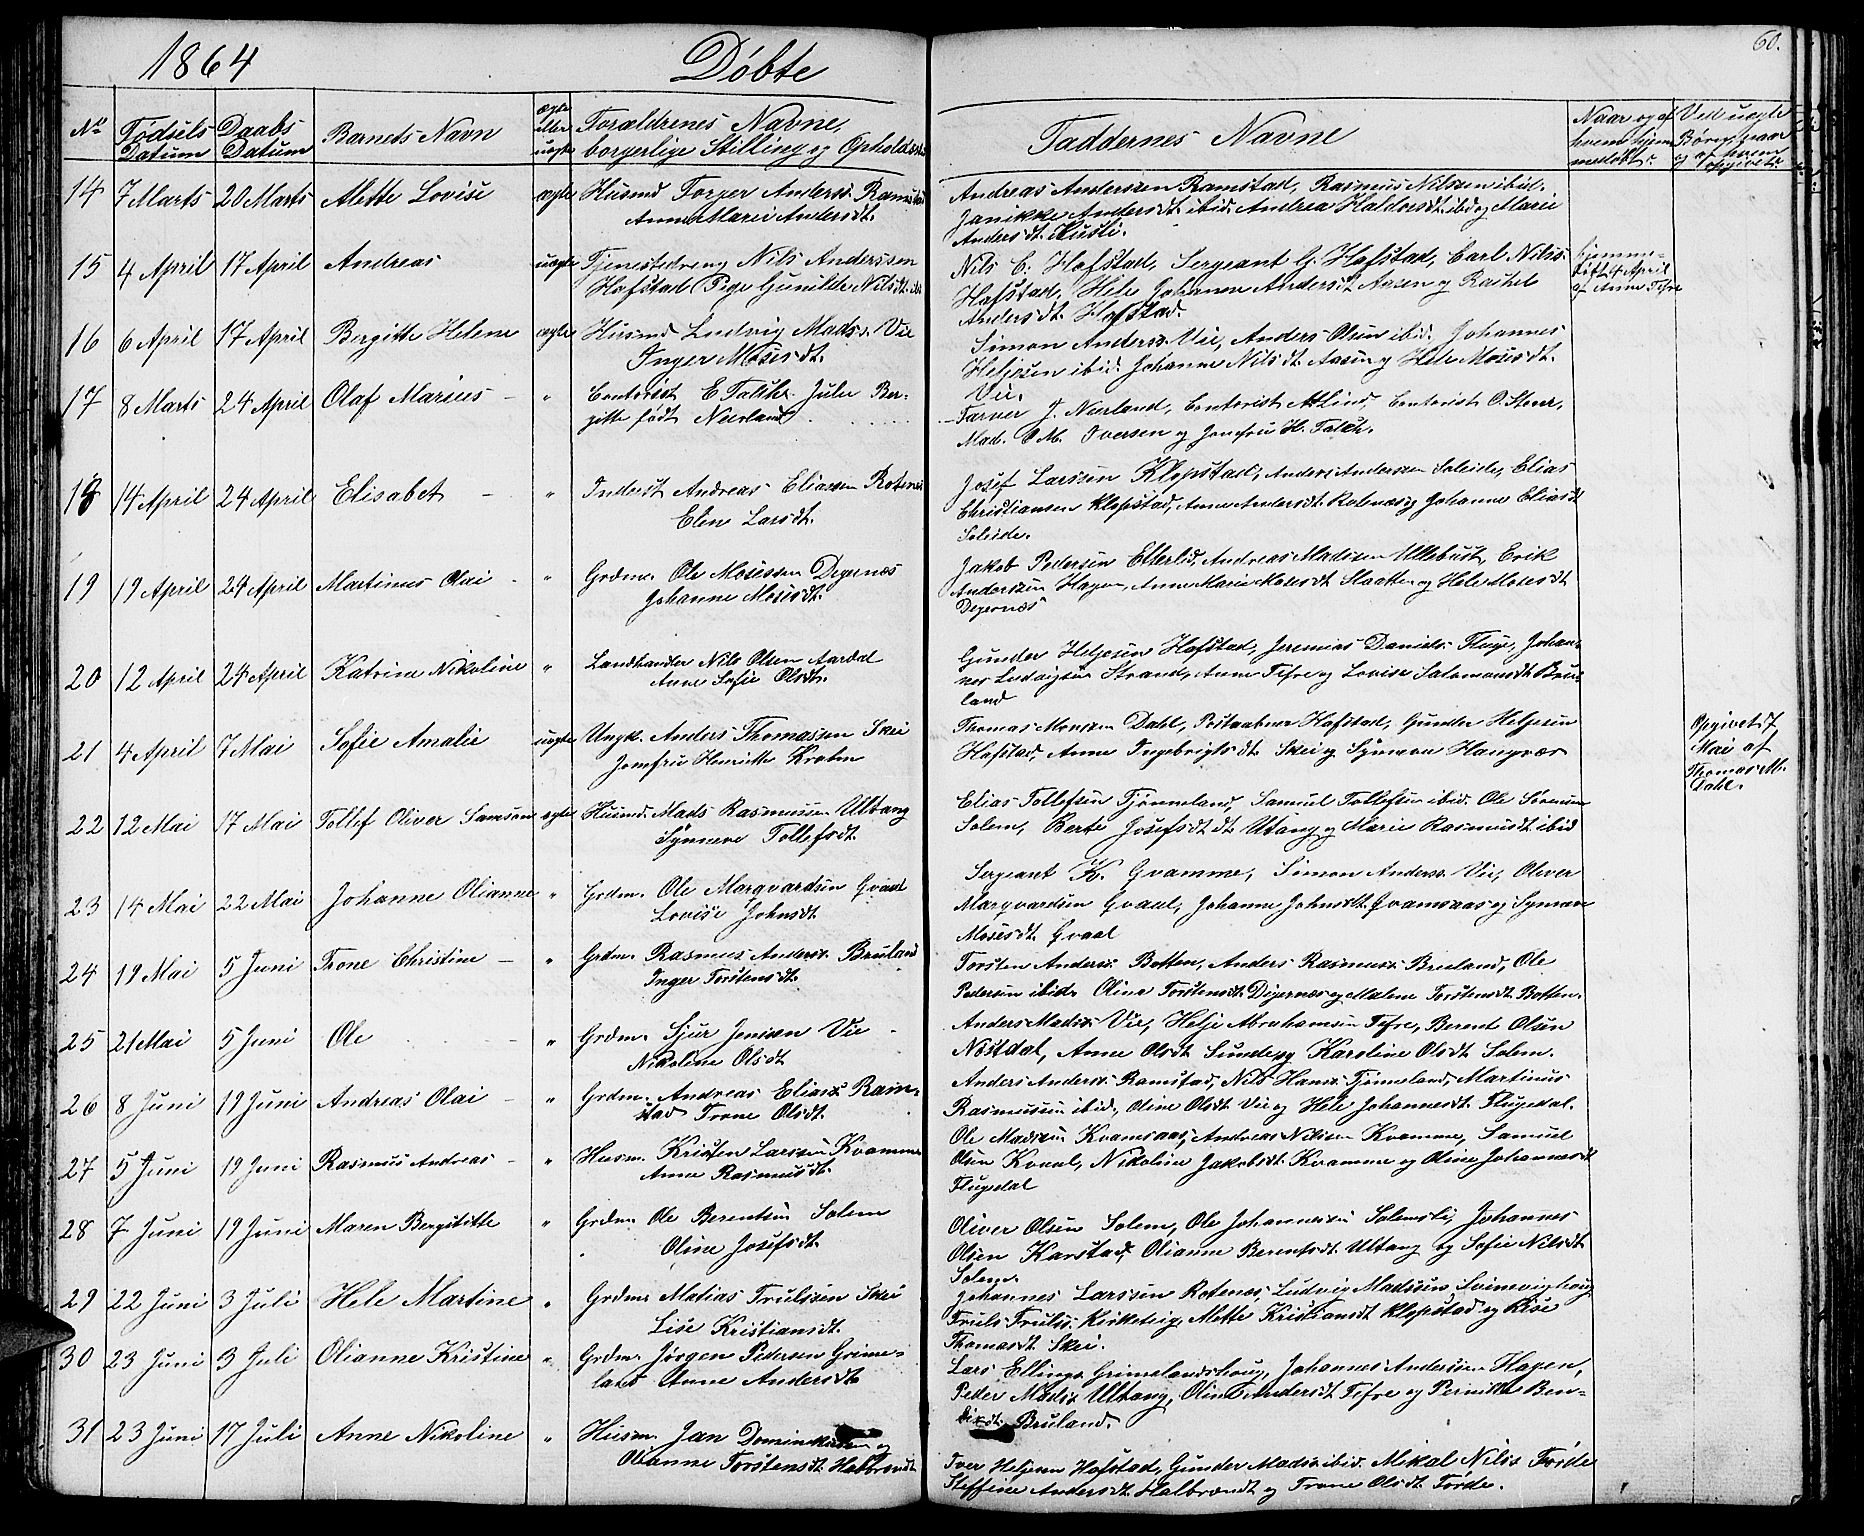 1864 Döbte 60.
No Födsels Datum Daabs Datum Barnets Navn ægte eller uægte Forældrenes Navne, borgerlige Stilling og Opholdsst. Faddernes Navne Naar og af hvem hjemmedöbt. Ved uægte Börn, naar og af hvem opgivet.
14 7 Marts 20 Marts Alette Lovise ægte Husmd Torger Anderss. Ramstad
Anne Marie Andersdt.
Andreas Anderssen Ramstad, Rasmus Nilssen ibid.
Janikke Andersdt. ibid. Andrea Haldorsdt. ibid og Marie
Andersdt. Husti.
15 4 April 17 April Andreas uægte Tjenestedreng Nils Anderssen
Hofstad Pige Gunilde Nilsdt. ibid
Nils C. Hofstad, Sergeant G. Hofstad, Carl Nilss.
Hofstad, Hele Johanne Andersdt. Aasen og Rachel
Andersdt. Hofstad.
hjemme-
döbt 4 April
af Anne Tefre
16 6 April 17 April Bergitte Helene ægte Husmd Ludvig Madss. Vie
Inger Mosesdt.
Simon Anderss. Vie, Anders Olsen ibid. Johannes
Heljesen ibid. Johanne Nilsdt. Aasen og Hele Mosesdt.
Vie.
17 8 Marts 24 April Olaf Marius - " Contorist E Falch. Julie Ber-
gitte födt Neerland
Farver J. Neerland, Contorist A Lind, Contorist O. Steer,
Mad. O M. Iversen og Jomfru H. Falch.
18 14 April 24 April Elisabet - " Inderst Andreas Eliassen Rotenes
Elen Larsdt.
Josef Larssen Klopstad, Anders Anderssen Soleide, Elias
Christiansen Klopstad, Anne Andersdt. Rotenes og Johanne Eliasdt
Soleide.
19 19 April 24 April Martinus Olai - " Grdm. Ole Mosessen Degernæs
Johanne Mosesdt.
Jakob Pedersen Etterlid, Andreas Madssen Ullebust, Erik
Anderssen Hagen, Anne Marie Mosesdt. Slaatten og Hele Mosesdt
Degernæs
20 12 April 24 April Katrine Nikoline " Landhandler Nils Olsen Aardal
Anne Sofie Olsdt.
Gunder Heljesen Hofstad, Jeremias Daniels. Fluge, Johan-
nes Ludvigsen Strand, Anne Tefre og Lovise Salamonsdt Bru-
land
21 4 April 7 Mai Sofie Amalie uægte Ungk. Anders Thomassen Skei
Jomfru Henriette Krohn
Thomas Monssen Dahl, Postaabner Hofstad, Gunder Heljesen
Hofstad, Anne Ingebrigtsdt. Skei og Synneve Hangvær
Opgivet 7
Mai af
Thomas M.
Dahl.
22 12 Mai 17 Mai Tollef Oliver Samson ægte Husmd. Mads Rasmussen Ultang
Synneve Tollefsdt.
Elias Tollefsen Tjönneland, Samuel Tollefsen ibid. Ole Sörensen
Solem, Berte Josefsdt dt Utang og Marie Rasmusdt. ibid
23 14 Mai 22 Mai Johanne Olianne " Grdm. Ole Marqvardsen Gvaal
Lovise Johnsdt
Sergeant K. Gvamme, Simon Anderss. Vie, Oliver
Marqvardsen Gvaal, Johanne Johnsdt. Qvamsaas og Synneve
Mosesdt. Gvaal
24 19 Mai 5 Juni Trone Christine - " Grdm. Rasmus Anderss. Bruland
Inger Torstensdt.
Torsten Anderss. Botten, Anders Rasmuss. Bruland, Ole
Pedersen ibid. Oline Torstensdt. Digernæs og Malene Torstensdt. Botten.
25 21 Mai 5 Juni Ole - " Grdm. Sjur Jensen Vie
Nikoline Olsdt
Anders Madss. Vie, Helje Abrahamsen Tefre, Berent Olsen
Nöstdal, Anne Olsdt Sunde og Karoline Olsdt. Solem.
26 8 Juni 19 Juni Andreas Olai - " Grdm. Andreas Eliass. Ram-
stad Trone Olsdt.
Anders Anderss. Ramstad, Nils Hanss. Tjönneland, Martinus
Rasmussen ibid., Oline Olsdt. Vie og Hele Johannesdt. Flugedal.
27 5 Juni 19 Juni Rasmus Andreas - " Husm. Kristen Larssen Kvamme
Anne Rasmusdt.
Ole Madssen Kvamsaas, Andreas Nilsen Kvamme, Samuel
Olsen Kvaal, Nikoline Jakobsdt. Kvamme og Oline Johannesdt
Flugedal
28 7 Juni 19 Juni Maren Bergitte " Grdm. Ole Berentsen Solem
Oline Josefsdt.
Oliver Olsen Solem, Ole Johannessen Solemsli, Johannes
Olsen Karstad, Olianne Berentsdt. Ultang og Sofie Nilsdt.
Solem.
29 22 Juni 3 Juli Hele Martine " Grdm. Matias Trulssen Skei
Lise Kristiansdt.
Johannes Larssen Rotenes, Ludvig Madssen Svinevighoug
Truls Trulss. Kirketeig, Mette Kristiansdt Klopstad og Lise
Thomasdt. Skei.
30 23 Juni 3 Juli Olianne Kristine " Grdm. Jörgen Pedersen Grime-
land Anne Andersdt.
Lars Ellings. Grimelandshoug, Johannes Anderssen Hagen,
Peder Madss. Ultang, Oline Andersdt Tefre og Pernille Ben-
dixdt. Bruland.
31 23 Juni 17 Juli Anne Nikoline " Husm. Jan Dominikussen og
Olianne Torstensdt. Halbrendt
Iver Heljesen Hofstad, Gunder Madss. ibid. Mikal Nilss. Förde
Steffine Andersdt. Halbrendt og Trone Olsdt. Förde.